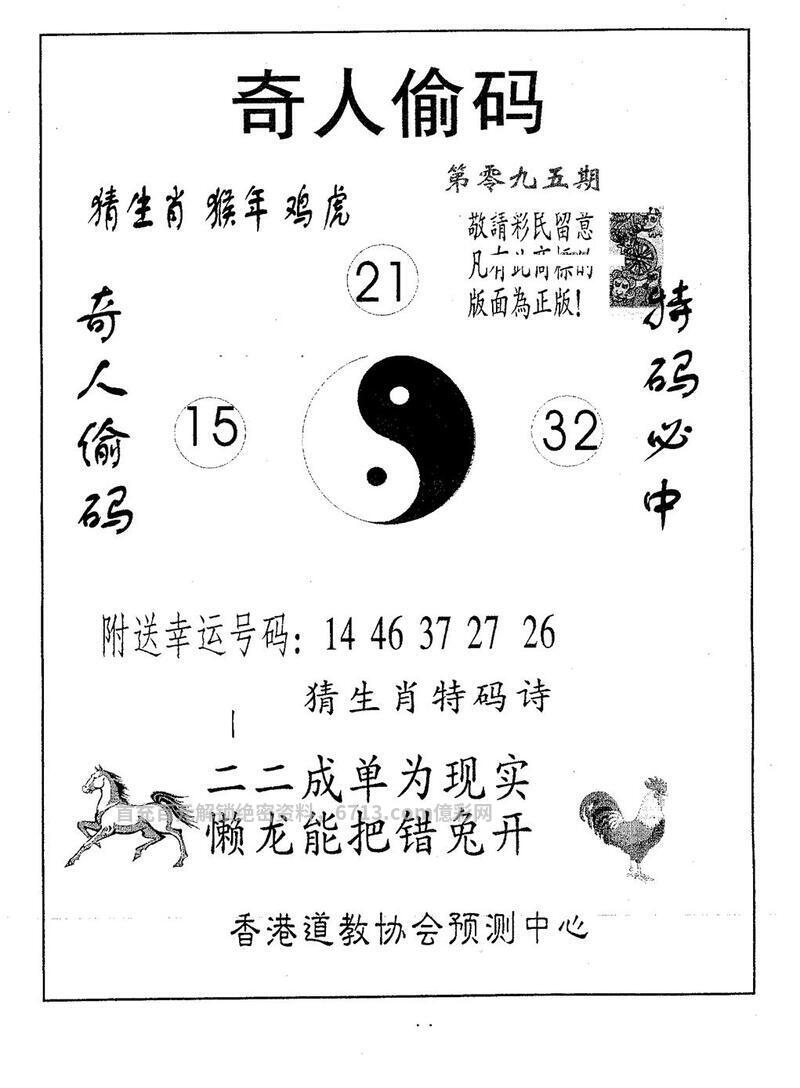 奇人偷码
第零九五期
猜生肖 猴年 鸡虎
敬請彩民留意
凡有此商標的
版面為正版！
21
奇人偷码
特码必中
15
32
附送幸运号码：14 46 37 27 26
猜生肖特码诗
二二成单为现实
懒龙能把错兔开
解锁绝密资料，6713.com億彩网
香港道教协会预测中心